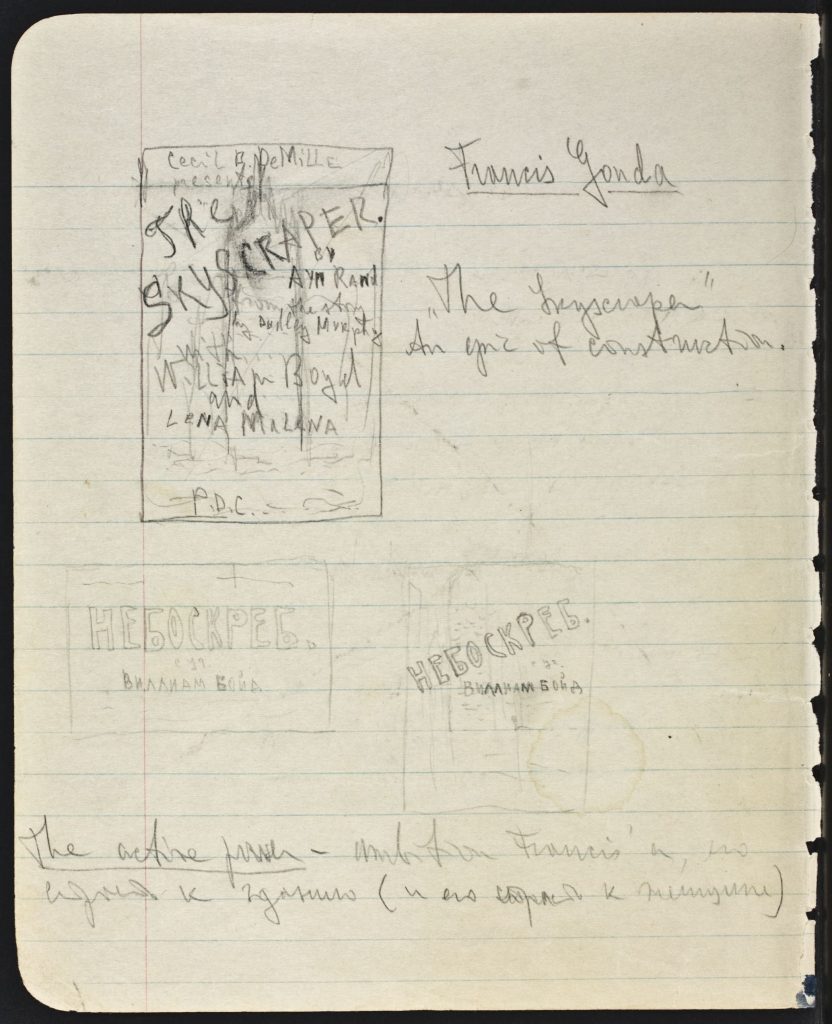 Cecil B. DeMille
presents
THE
SKYSCRAPER.
BY
AYN RAND
from the story
by Dudley Murphy
with
William Boyd
and
LENA MALENA
P.D.C.
Francis Gonda
„The Skyscraper"
An epic of construction.
НЕБОСКРЕБ.
ВИЛЛИАМ БОЙД
НЕБОСКРЕБ.
ВИЛЛИАМ БОЙД
The active power – ambition Francis'а, его
страсть к зданию (и его страсть к женщине)